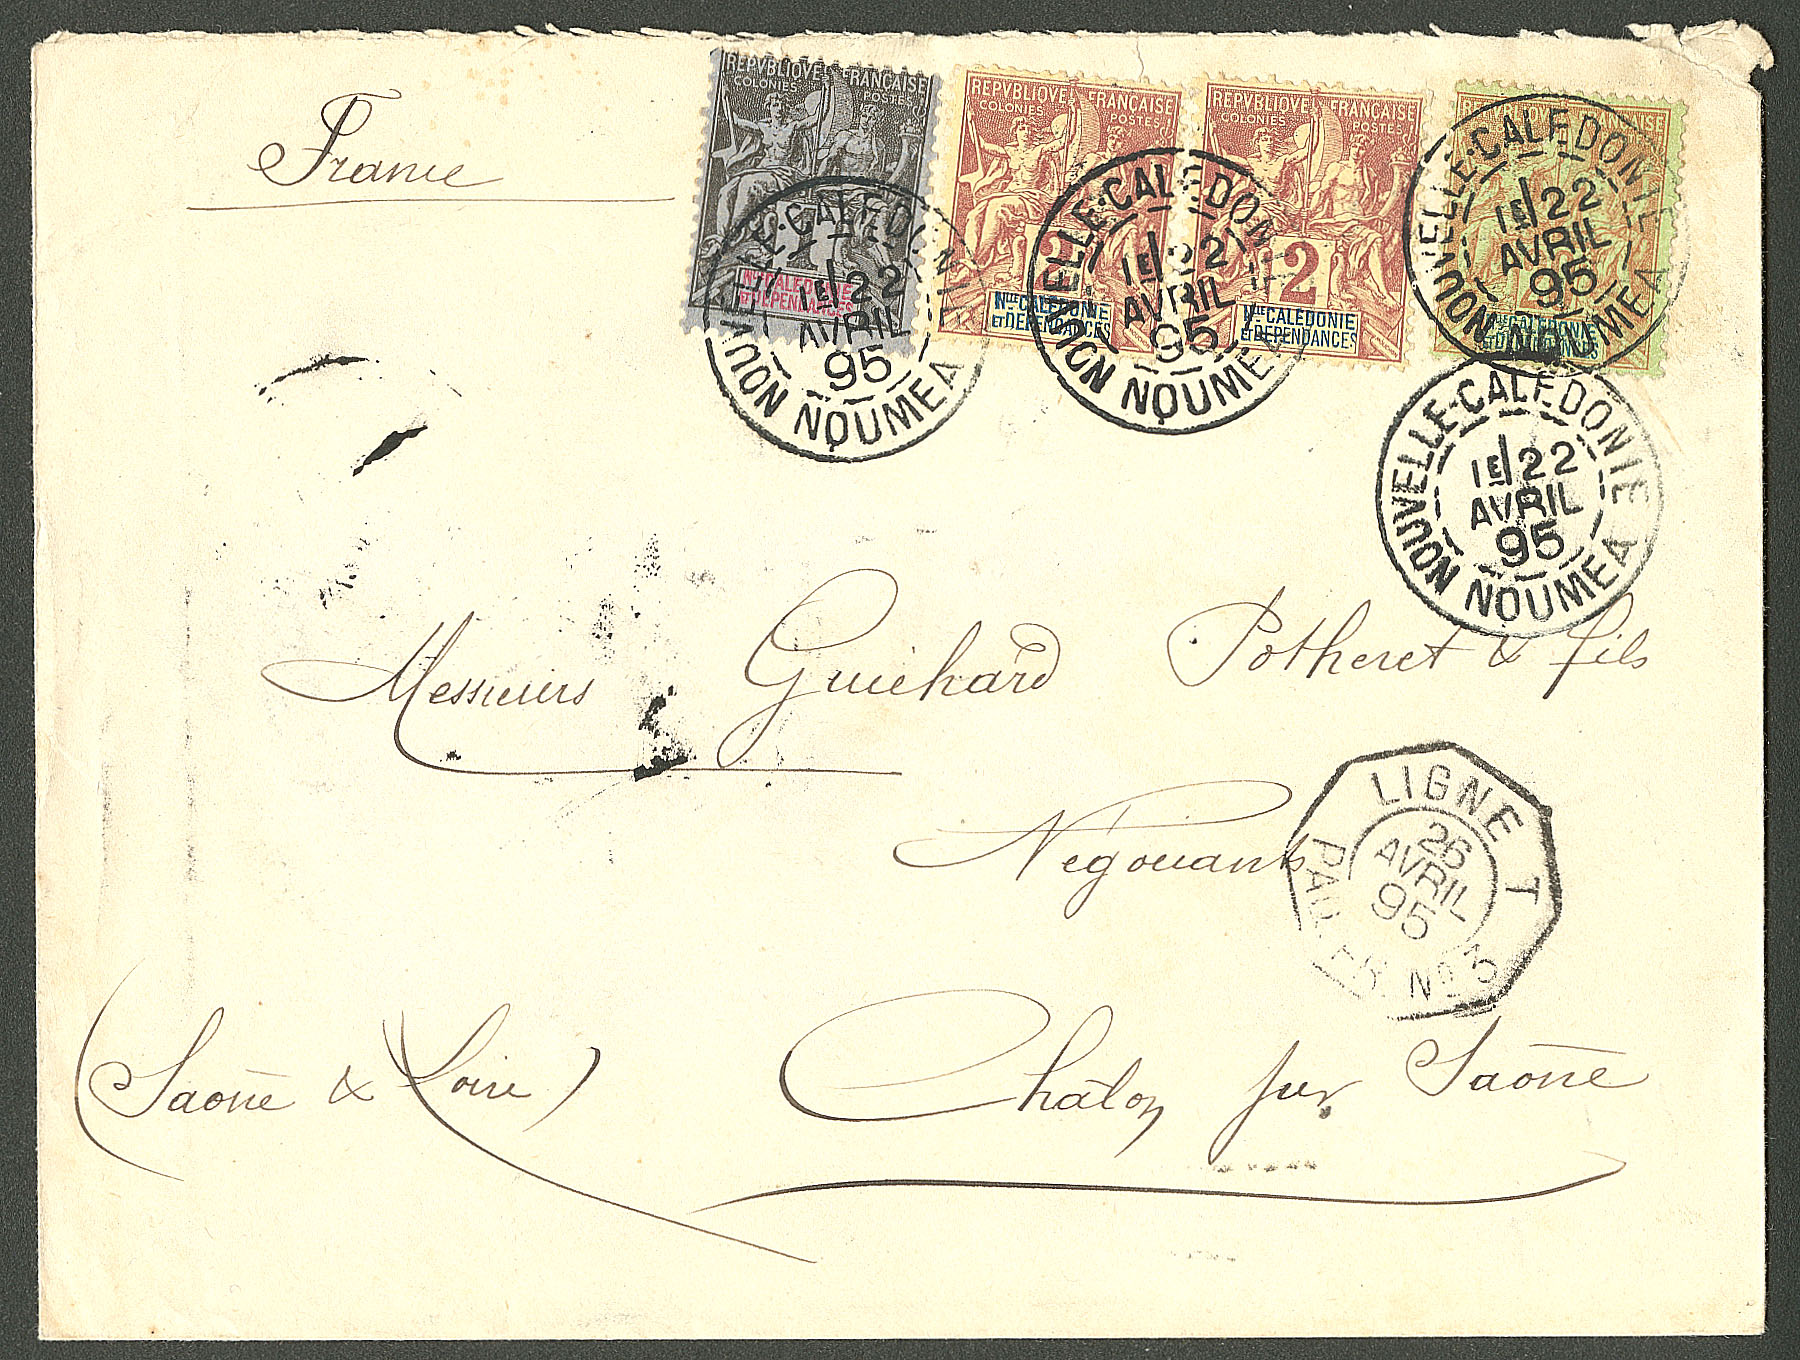 France
REPVBLIQVE FRANÇAISE
COLONIES POSTES
Nlle CALÉDONIE
ET DÉPENDANCES
REPVBLIQVE FRANÇAISE
COLONIES POSTES
2
Nlle CALÉDONIE
ET DÉPENDANCES
REPVBLIQVE FRANÇAISE
COLONIES POSTES
2
Nlle CALÉDONIE
ET DÉPENDANCES
REPVBLIQVE FRANÇAISE
Nlle CALÉDONIE
ET DÉPENDANCES
NOUVELLE-CALEDONIE
1E/22
AVRIL
95
NOUMEA
NOUVELLE-CALEDONIE
1E/22
AVRIL
95
NOUMEA
NOUVELLE-CALEDONIE
1E/22
AVRIL
95
NOUMEA
NOUVELLE-CALEDONIE
1E/22
AVRIL
95
NOUMEA
Messieurs Guichard Potheret & fils
Négociants
LIGNE T
26
AVRIL
95
PAQ. FR. No 3
(Saône & Loire) Châlon sur Saône